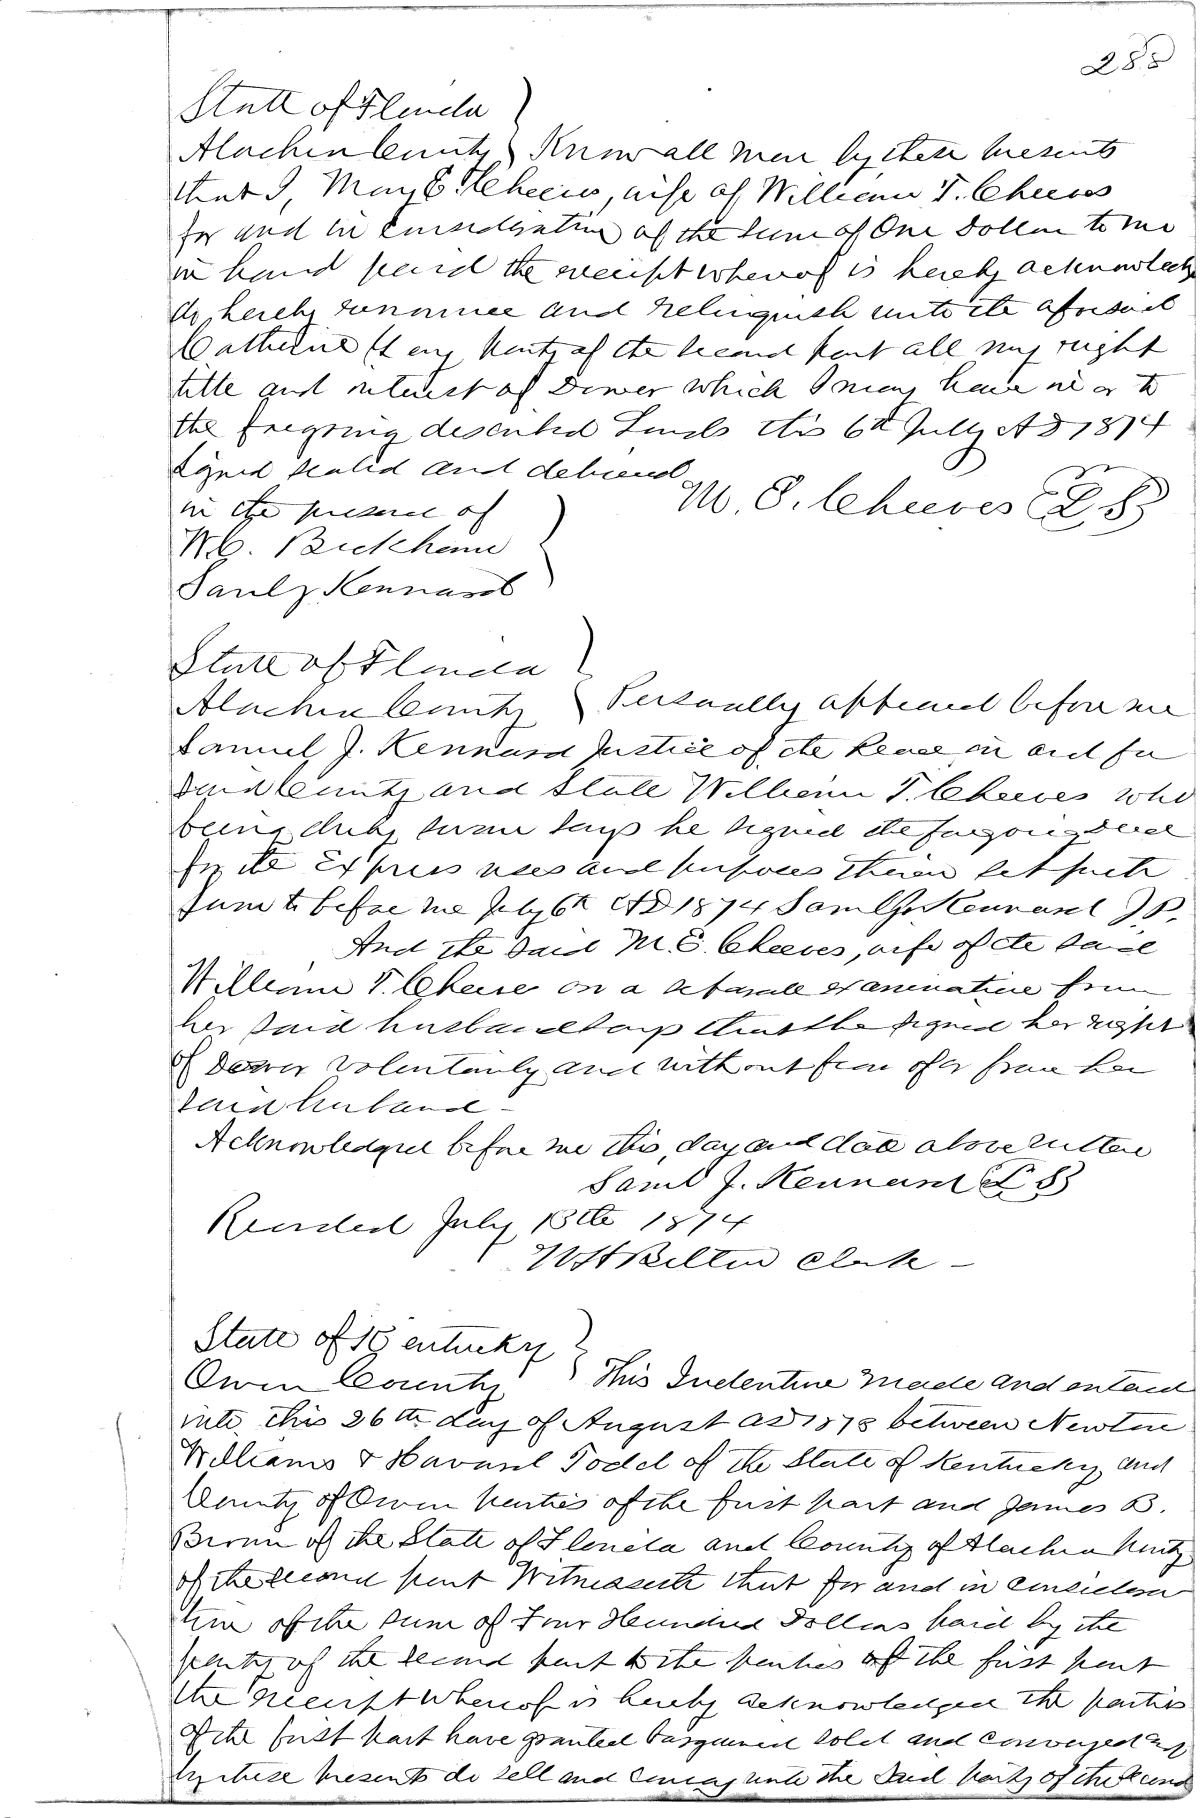 288
State of Florida
Alachua County } Know all men by these presents
that I, Mary E. Cheeves, wife of William T. Cheeves
for and in consideration of the sum of One Dollar to me
in hand paid the receipt whereof is hereby acknowledge
do hereby renounce and relinquish unto the aforesaid
Catherine party of the second part all my right
title and interest of Dower which I may have in or to
the foregoing described Lands this 6th July AD 1874
Signed sealed and delivered
in the presence of
M. E. Cheeves (L S)
W.C. Beckham
Saml J Kennard
State of Florida
Alachua County } Personally appeared before me
Samuel J. Kennard Justice of the Peace in and for
said County and State William T. Cheeves who
being duly sworn says he signed the foregoing deed
for the Express uses and purposes therein set forth
Sworn to before me July 6th AD 1874 Saml J. Kennard J.P.
And the said M. E. Cheeves, wife of the said
William T. Cheeves on a separate examination from
her said husband says that she signed her right
of Dower voluntarily and without fear of or from her
said husband -
Acknowledged before me this, day and date above written
Saml J. Kennard (L S)
Recorded July 13th 1874
Clerk -
State of Kentucky
Owen County } This Indenture made and entered
into this 26th day of August AD 1873 between Newton
Williams & Havard Todd of the State of Kentucky and
County of Owen parties of the first part and James B.
Brown of the State of Florida and County of Alachua party
of the second part Witnesseth that for and in considera
tion of the sum of Four Hundred Dollars paid by the
party of the second part to the parties of the first part
the receipt whereof is hereby acknowledged the parties
of the first part have granted bargained sold and conveyed and
by these presents do sell and convey unto the said party of the second